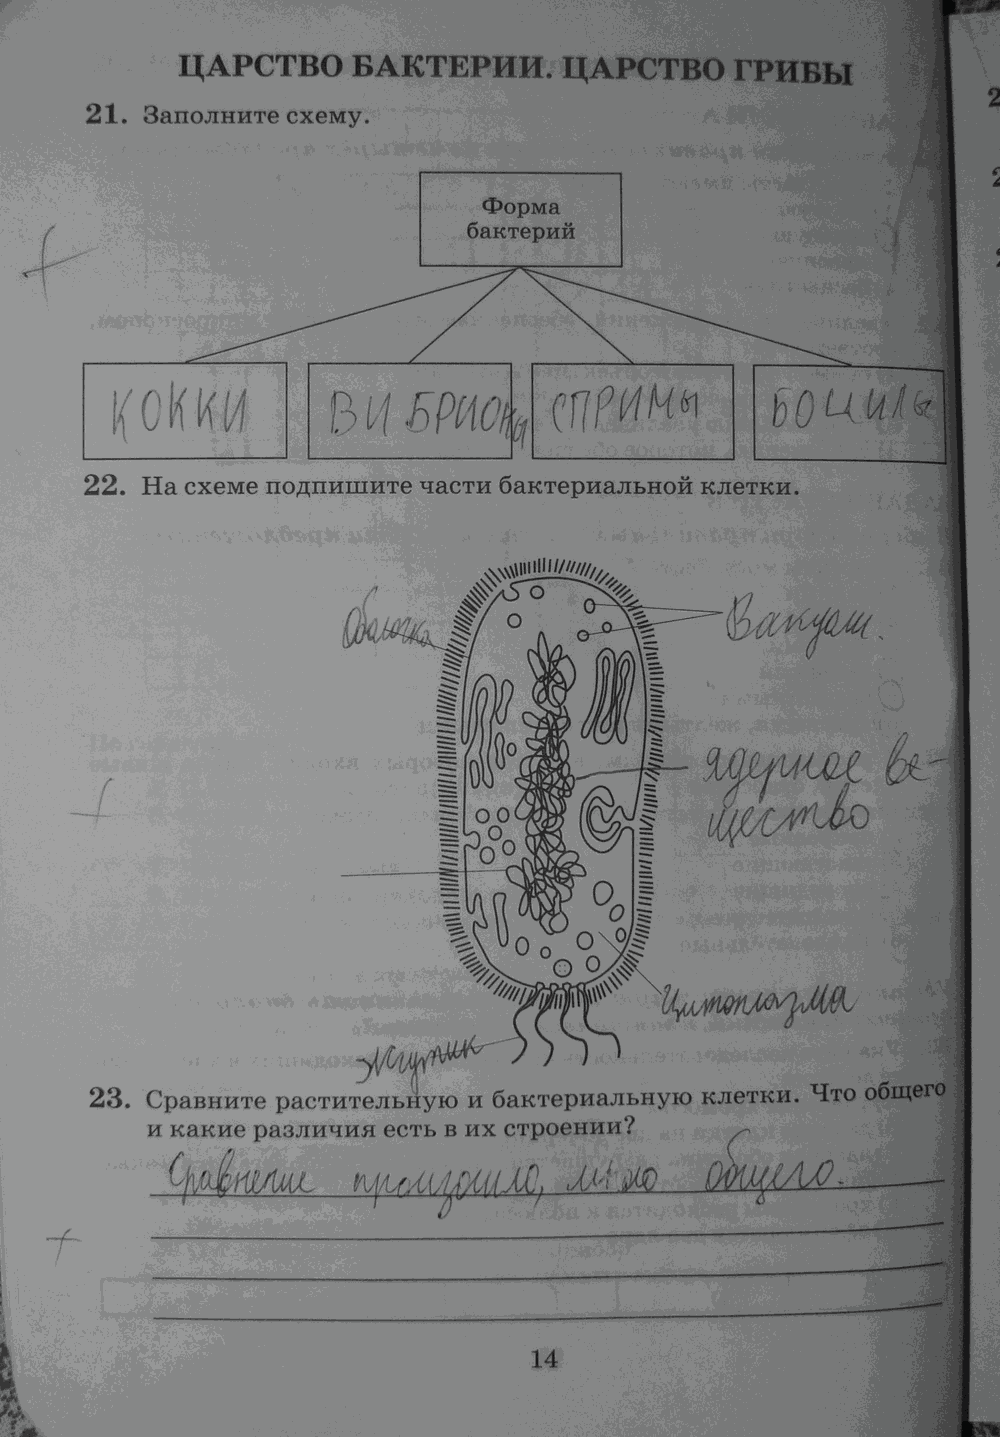 ЦАРСТВО БАКТЕРИИ. ЦАРСТВО ГРИБЫ
21. Заполните схему.
Форма
бактерий
КОККИ ВИБРИОНЫ СПРИМЫ БОЦИЛЫ
22. На схеме подпишите части бактериальной клетки.
Оболочка
Вакуоли.
ядерное ве-
щество
Цитоплазма
жгутик
23. Сравните растительную и бактериальную клетки. Что общего
и какие различия есть в их строении?
Сравнение произошло, мало общего.
14